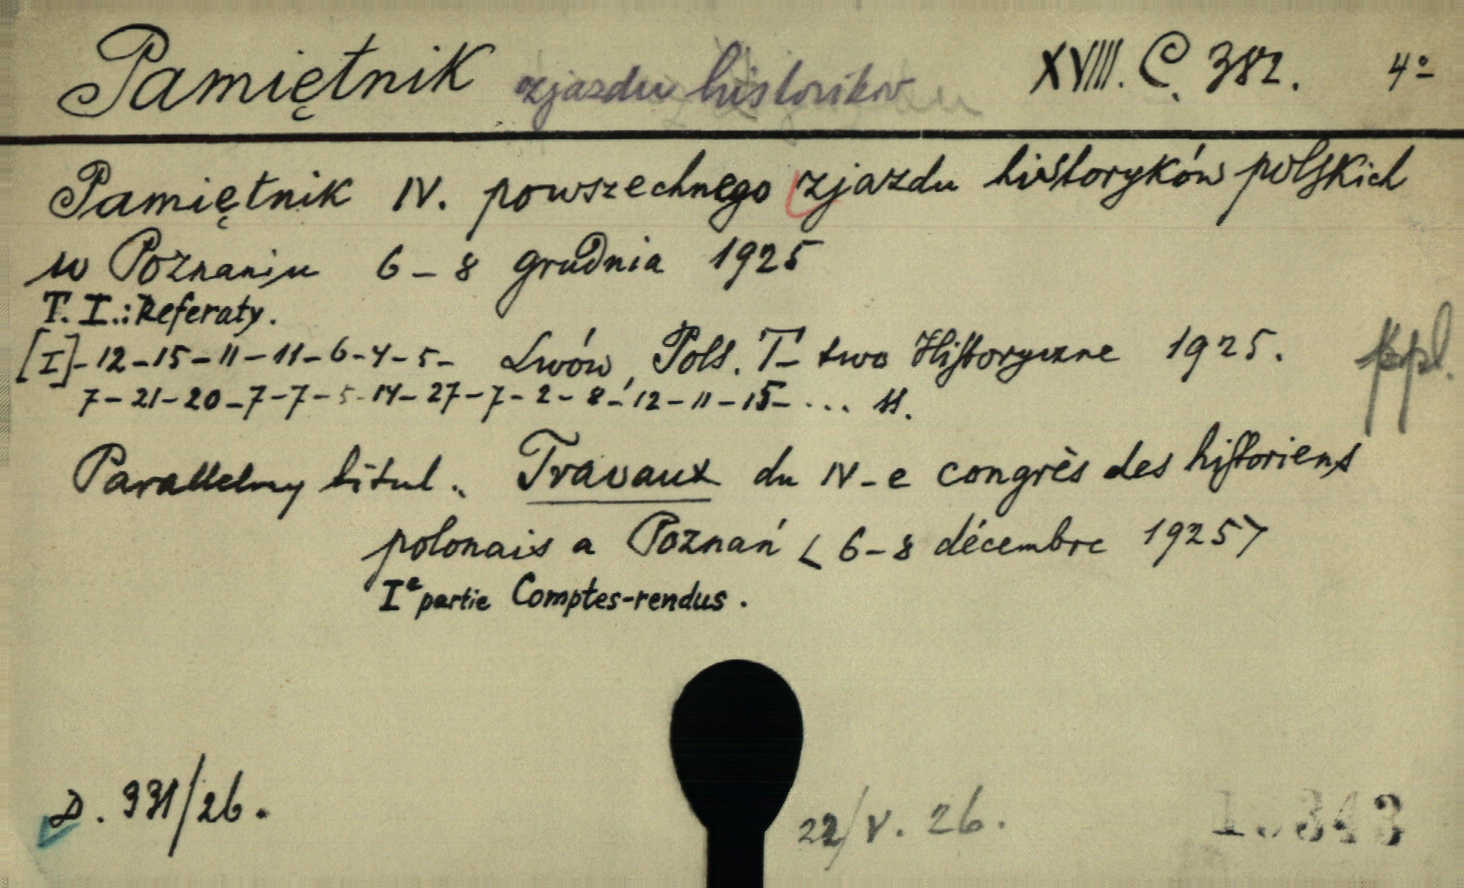 Pamiętnik zjazdu historikov XVIII. C. 382. 4°
Pamiętnik IV. powszechnego zjazdu historyków polskich
w Poznaniu 6-8 grudnia 1925
T. I.: Referaty.
[I]-12-15-11-11-6-4-5- Lwów, Pols. T-two Historyczne 1925.
7-21-20-7-7-5-14-27-7-2-8-12-11-15-... s.
Parallelny titul.. Travaux du IV-e congrès des historiens
polonais a Poznań < 6-8 décembre 1925>
Ie partie Comptes-rendus.
D. 931/26.
22/V. 26.